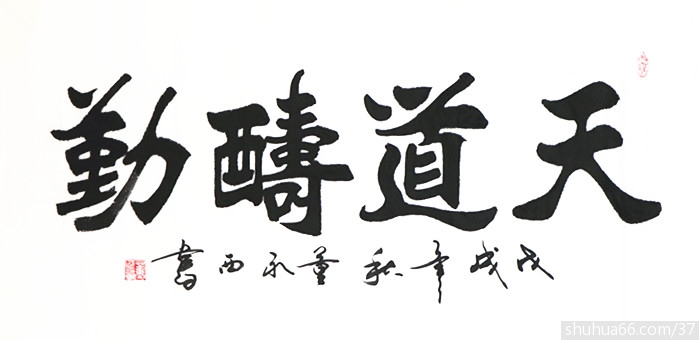 天道醻勤
戊戌年秋董永西書
shuhua66.com/37